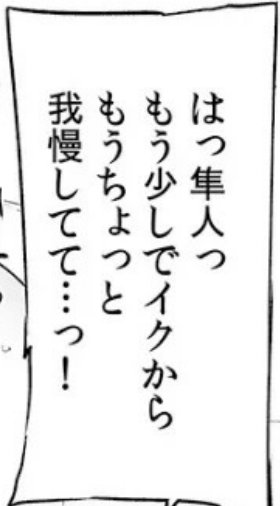 はっ隼人っ
もう少しでイクから
もうちょっと
我慢してて…っ！